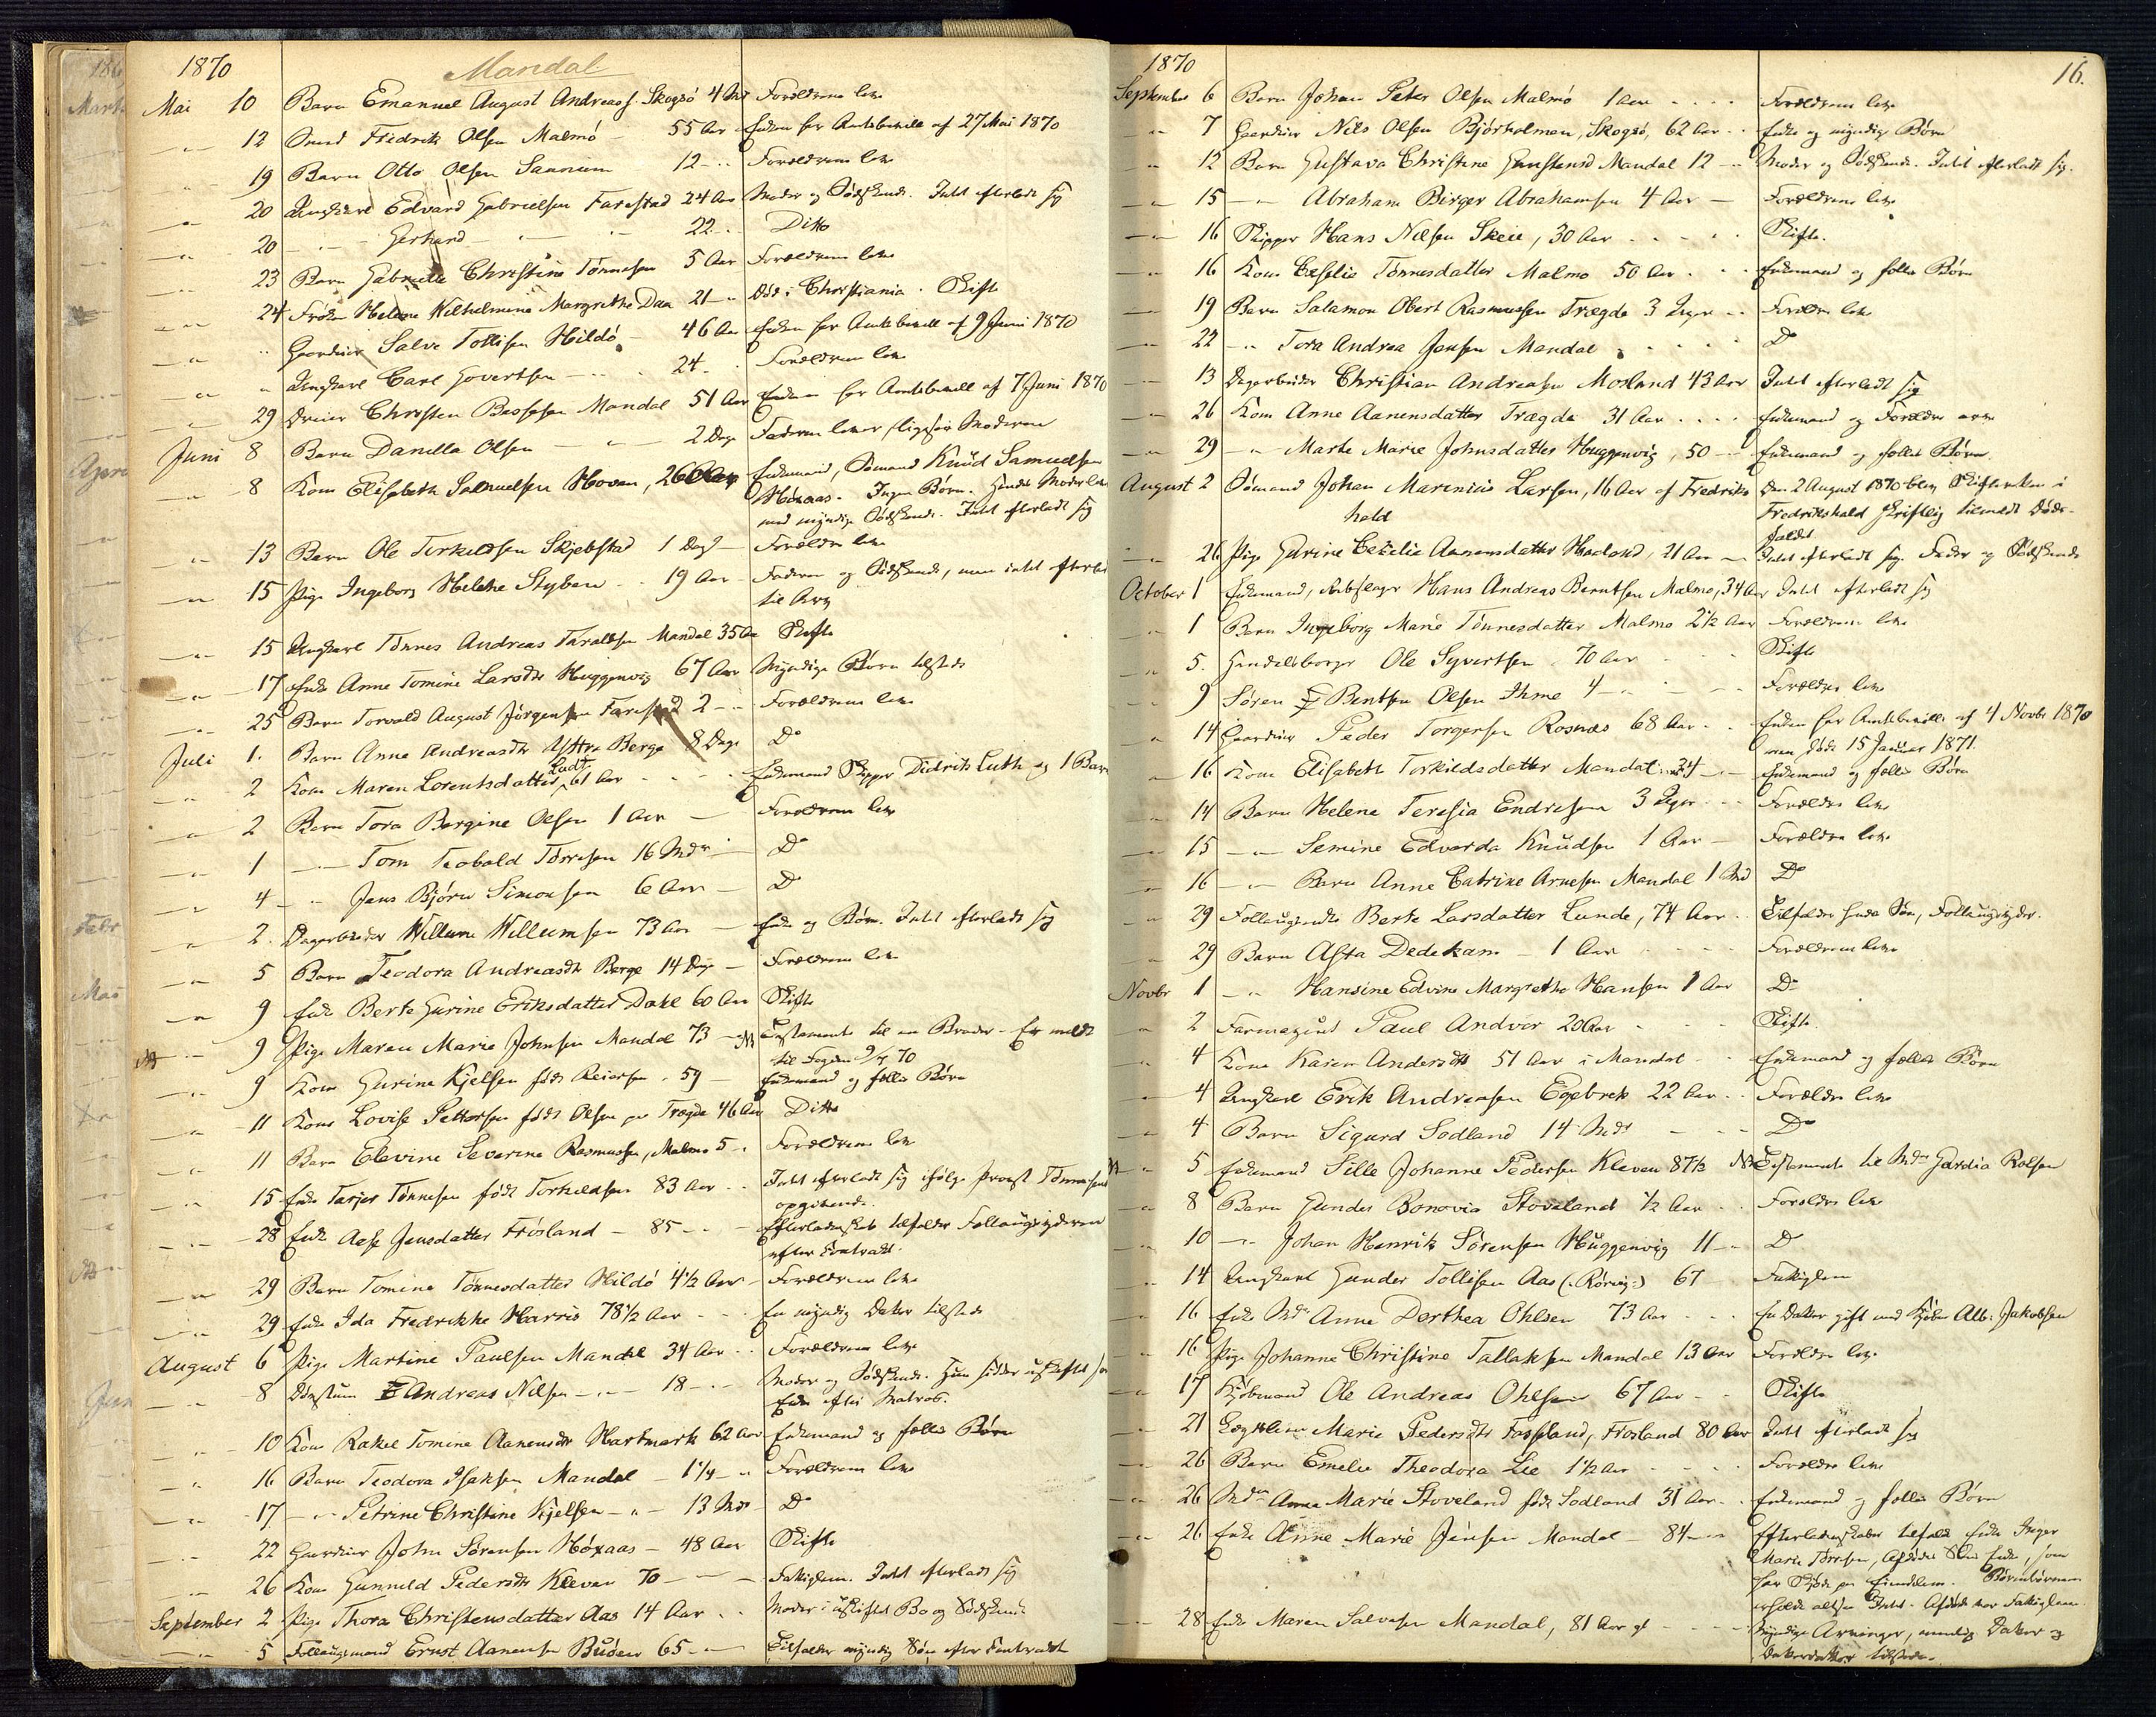 1870
Mandal
Mai 10 Barn Emanuel August Andreass. Skogsö 4 Md Forældrene leve
12 Smed Fredrik Olsen Malmö 55 Aar Enken har Amtsbevill. af 27 Mai 1870
19 Barn Otto Olsen Sannum 12 Forældrene leve
20 Ungkarl Edvard Gabrielsen Farestad 24 Aar Moder og Södskende. Intet efterladt sig
20 Gerhard 22 Ditto
23 Barn Gabrielle Christine Tönnesen 5 Aar Forældrene leve
24 Fröken Helene Wilhelmine Margrethe Daa 21 Död i Christiania. Skifte
" Gaardmr Salve Tollisen Hildö 46 Aar Enken har Amtsbevill. af 9 Juni 1870
" Ungkarl Carl Govertsen 24 Forældrene leve
29 Dreier Christen Bessesen Mandal 51 Aar Enken har Amtsbevill. af 7 Juni 1870
Juni 8 Barn Danella Olsen 2 Dage Faderen lever, ligesaa Moderen
8 Kone Elisabeth Salmuelsen Hoven, 26 Aar Enkemand, Sömand Knud Samuelsen
Höxaas. Ingen Börn. Hendes Moder lever
med myndige Södskende. Intet efterladt sig
13 Barn Ole Terkildsen Skjebstad 1 Dag Forældre leve
15 Pige Ingeborg Helene Styben 19 Aar Faderen og Södskende, men intet efterladt
til Arv
15 Ungkarl Tönnes Andreas Taraldsen Mandal 35 Aar Skifte
17 Enke Anne Tomine Larsdtr Huggenvig 67 Aar Myndige Börn tilstede
25 Barn Torvald August Jörgensen Farestad 2 Forældrene leve
Juli 1. Barn Anne Andreasdtr Ystre Berge 8 Dage Do
Ludt
2 Kone Maren Lorentsdatter 61 Aar Enkemand Skipper Didrik Luth og 1 Barn
2 Barn Tora Bergine Olsen 1 Aar Forældrene leve
1 Tom Teobald Törresen 16 Mdr Do
4 Jens Björn Simonsen 6 Aar Do
2. Dagarbeider Willum Willumsen 73 Aar Enke og Börn. Intet efterladt sig
5 Barn Teodora Andreasdtr Berge 14 Dage Forældrene leve
9 Enke Berte Gurine Eriksdatter Dahl 60 Aar Skifte
9 Pige Maren Marie Johnsen Mandal 73 NB Testamente til en Broder - Er meldt
til Fogden 9/7 70
9 Kone Gurine Kjelsen födt Reiersen 59 Enkemand og fælles Börn
11 Kone Lovise Pettersen födt Olsen paa Trægde 46 Aar Ditto
11 Barn Elevine Severine Rasmussen, Malmö 5 Forældrene leve
15 Enke Tarjer Tönnesen födt Torkildsen 83 Aar Intet efterladt sig ifölge Provst Tönnesens
opgivende.
28 Enke Aase Jensdatter Frösland 85 Efterladenskab tilfalder Follaugsyderen
efter Contract.
29 Barn Tomine Tönnesdatter Hildö 4 1/2 Aar Forældrene leve
29 Enke Ida Fredrikke Harris 78 1/2 Aar En myndig Datter tilstede
August 6 Pige Martine Paulsen Mandal 34 Aar Forældrene leve
8 Andreas Nilsen 18 Moder og Södskende. Hun sidder uskiftet som
Enke efter
10 Kone Rakel Tomine Aanensdtr Hartmark 62 Aar Enkemand og fælles Börn
16 Barn Teodora Isaksen Mandal 1 1/4 Forældrene leve
17 Petrine Christine Kjelsen 13 Mdr Do
22 Gaardmr John Sörensen Höxaas 48 Aar Skifte
26 Kone Gunnild Pedersdtr Kleven 70 Fattiglem. Intet efterladt sig
September 2 Pige Thora Christensdatter Aas 14 Aar Moder i uskiftet Bo og Södskende
5 Follaugsmand Ernst Aanensen Buöen 65 Tilfalder myndig Sön efter Contract
1870
16.
September 6 Barn Johan Peter Olsen Malmö 1 Aar Forældrene leve
7 Gaardmr Nils Olsen Björholmen, Skogsö, 62 Aar Enke og myndige Börn
12 Barn Gustava Christine Mandal 12 Moder og Södskende. Intet efterladt sig.
15 Abraham Birger Abrahamsen 4 Aar Forældrene leve
16 Skipper Hans Nilsen Skeie, 30 Aar Skifte.
16 Kone Tönnesdatter Malmö 50 Aar Enkemand og fælles Börn
19 Barn Salamon Obert Rasmussen Trægde 3 Uger Forældre leve
22 Tora Andrea Jensen Mandal Do
13 Dagarbeider Christian Andreasen Mosland 43 Aar Intet efterladt sig
26 Kone Anne Aanensdatter Trægde 31 Aar Enkemand og Forældre arve
29 Marte Marie Johnsdatter Huggenvig, 50 Enkemand og fælles Börn
August 2 Sömand Johan Marinius Larsen, 16 Aar af Fredriks Den 2 August 1870 blev Skifteretten i
hald Fredrikshald skriftlig tilmeldt Döds-
faldet
26 Pige Gurine Cecilie Aanensdatter Haaland, 21 Aar Intet efterladt sig. Fader og Södskende
October 1 Enkemand, Rebslager Hans Andreas Berntsen Malmö, 34 Aar Intet efterladt sig
1 Barn Ingeborg Marie Tönnesdatter Malmö 2 1/2 Aar Forældrene leve
5. Handelsborger Ole Syvertsen 70 Aar Skifte
9 Sören Bentsen Olsen Ihme 4 Forældre leve
14 Gaardmr Peder Torgersen Rosnæs 68 Aar Enken har Amtsbevill. af 4 Novbr 1870
men döde 15 Januar 1871.
16 Kone Elisabeth Torkildsdatter Mandal 34 Enkemand og fælles Börn
14 Barn Helene Teresia Endresen 3 Uger Forældre leve
15 Semine Edvarda Knudsen 1 Aar Forældre leve
16 Barn Anne Catrine Arnesen Mandal 1 Md Do
29 Follaugsenke Berte Larsdatter Lunde, 74 Aar Tilfalder hendes Sön, Follaugsyder.
29 Barn Asta Dedekam 1 Aar Forældrene leve
Novbr 1 Hansine Edvine Margrethe Hansen 1 Aar Do
2 Farmaceut Paul Andvor 20 Aar Skifte
4 Kone Karen Andersdtr 51 Aar i Mandal Enkemand og fælles Börn
4 Ungkarl Erik Andreasen Egebrek 22 Aar Forældre leve
4 Barn Sigurd Sodland 14 Mdr Do
5 Enkemand Sille Johanne Pedersen Kleven 87 1/2 NB Testamente til Mdm Gardia Rolsen
8 Barn Gunder Bonovia Stoveland 1/2 Aar Forældre leve
10 Johan Henrik Sörensen Huggenvig 11 Do
14 Ungkarl Gunder Tollisen Aas (:Rörvig:) 67 Fattiglem
16 Enke Mdm Anne Dorthea Ohlsen 73 Aar En Datter gift med Kjöbm Alb: Jakobsen
16 Pige Johanne Christine Tallaksen Mandal 13 Aar Forældre leve
17 Kjöbmand Ole Andreas Ohlsen 67 Aar Skifte
21 Lægdslem Marie Pedersdtr Fossland, Frösland 80 Aar Intet efterladt sig
26 Barn Emelie Theodora Lie 1 1/2 Aar Forældre leve
26 Mdm Anna Marie Stoveland födt Sodland 31 Aar Enkemand og fælles Börn
26 Enke Anne Marie Jensen Mandal 84 Efterladenskaber tilfald Enke Inger
Marie Törresen, Afdödes Söns Enke, som
har Skjöde paa Eiendelene. Börnebörnene
erholde altsaa Intet. Afdöde var Fattiglem
28 Enke Maren Salvesen Mandal, 81 Aar gl Myndige Arvinger, nemlig Datter og
Datterdatter tilstede.